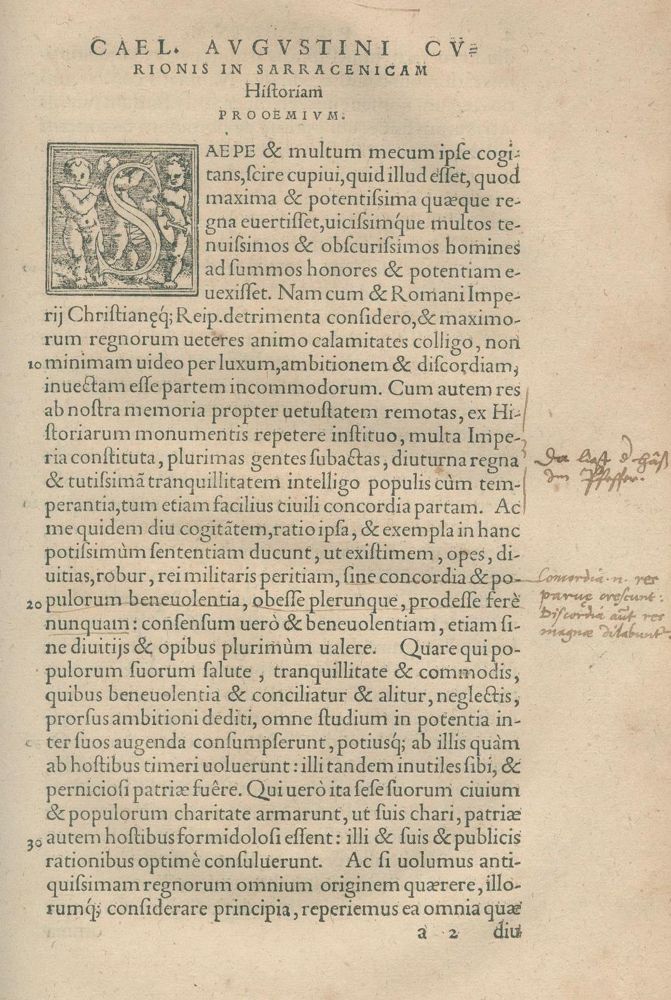 CAEL. AVGVSTINI CV-
RIONIS IN SARRACENICAM
Hiſtoriam
PROOEMIVM.
SAEPE & multum mecum ipſe cogi-
tans, ſcire cupiui, quid illud eſſet, quod
maxima & potentiſsima quæque re-
gna euertiſſet, uiciſsimq́ue multos te-
nuiſsimos & obſcuriſsimos homines
ad ſummos honores & potentiam e-
uexiſſet. Nam cum & Romani Impe-
rij Chriſtianęq́; Reip. detrimenta conſidero, & maximo-
rum regnorum ueteres animo calamitates colligo, non
10 minimam uideo per luxum, ambitionem & diſcordiam,
inuectam eſſe partem incommodorum. Cum autem res
ab noſtra memoria propter uetuſtatem remotas, ex Hi-
ſtoriarum monumentis repetere inſtituo, multa Impe-
ria conſtituta, plurimas gentes ſubactas, diuturna regna
& tutiſsimã tranquillitatem intelligo populis cùm tem-
perantia, tum etiam facilius ciuili concordia partam. Ac
me quidem diu cogitãtem, ratio ipſa, & exempla in hanc
potiſsimùm ſententiam ducunt, ut exiſtimem, opes, di-
uitias, robur, rei militaris peritiam, ſine concordia & po-
20 pulorum beneuolentia, obeſſe plerunque, prodeſſe ferè
nunquam: conſenſum uerò & beneuolentiam, etiam ſi-
ne diuitijs & opibus plurimùm ualere. Quare qui po-
pulorum ſuorum ſalute, tranquillitate & commodis,
quibus beneuolentia & conciliatur & alitur, neglectis,
prorſus ambitioni dediti, omne ſtudium in potentia in-
ter ſuos augenda conſumpſerunt, potiusq́; ab illis quàm
ab hoſtibus timeri uoluerunt: illi tandem inutiles ſibi, &
pernicioſi patriæ fuêre. Qui uerò ita ſeſe ſuorum ciuium
& populorum charitate armarunt, ut ſuis chari, patriæ
30 autem hoſtibus formidoloſi eſſent: illi & ſuis & publicis
rationibus optimè conſuluerunt. Ac ſi uolumus anti-
quiſsimam regnorum omnium originem quærere, illo-
rumq́; conſiderare principia, reperiemus ea omnia quæ
a 2 diu
Da
im Pfeffer.
Concordia n. res
parvę creſcunt:
Diſcordia aũt res
magnæ dilabunt